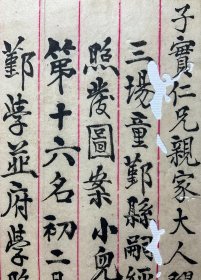 子實仁兄親家大人
三場童鄞縣嗣經
照發圖案小兒
第十六名初二
鄞學並府學